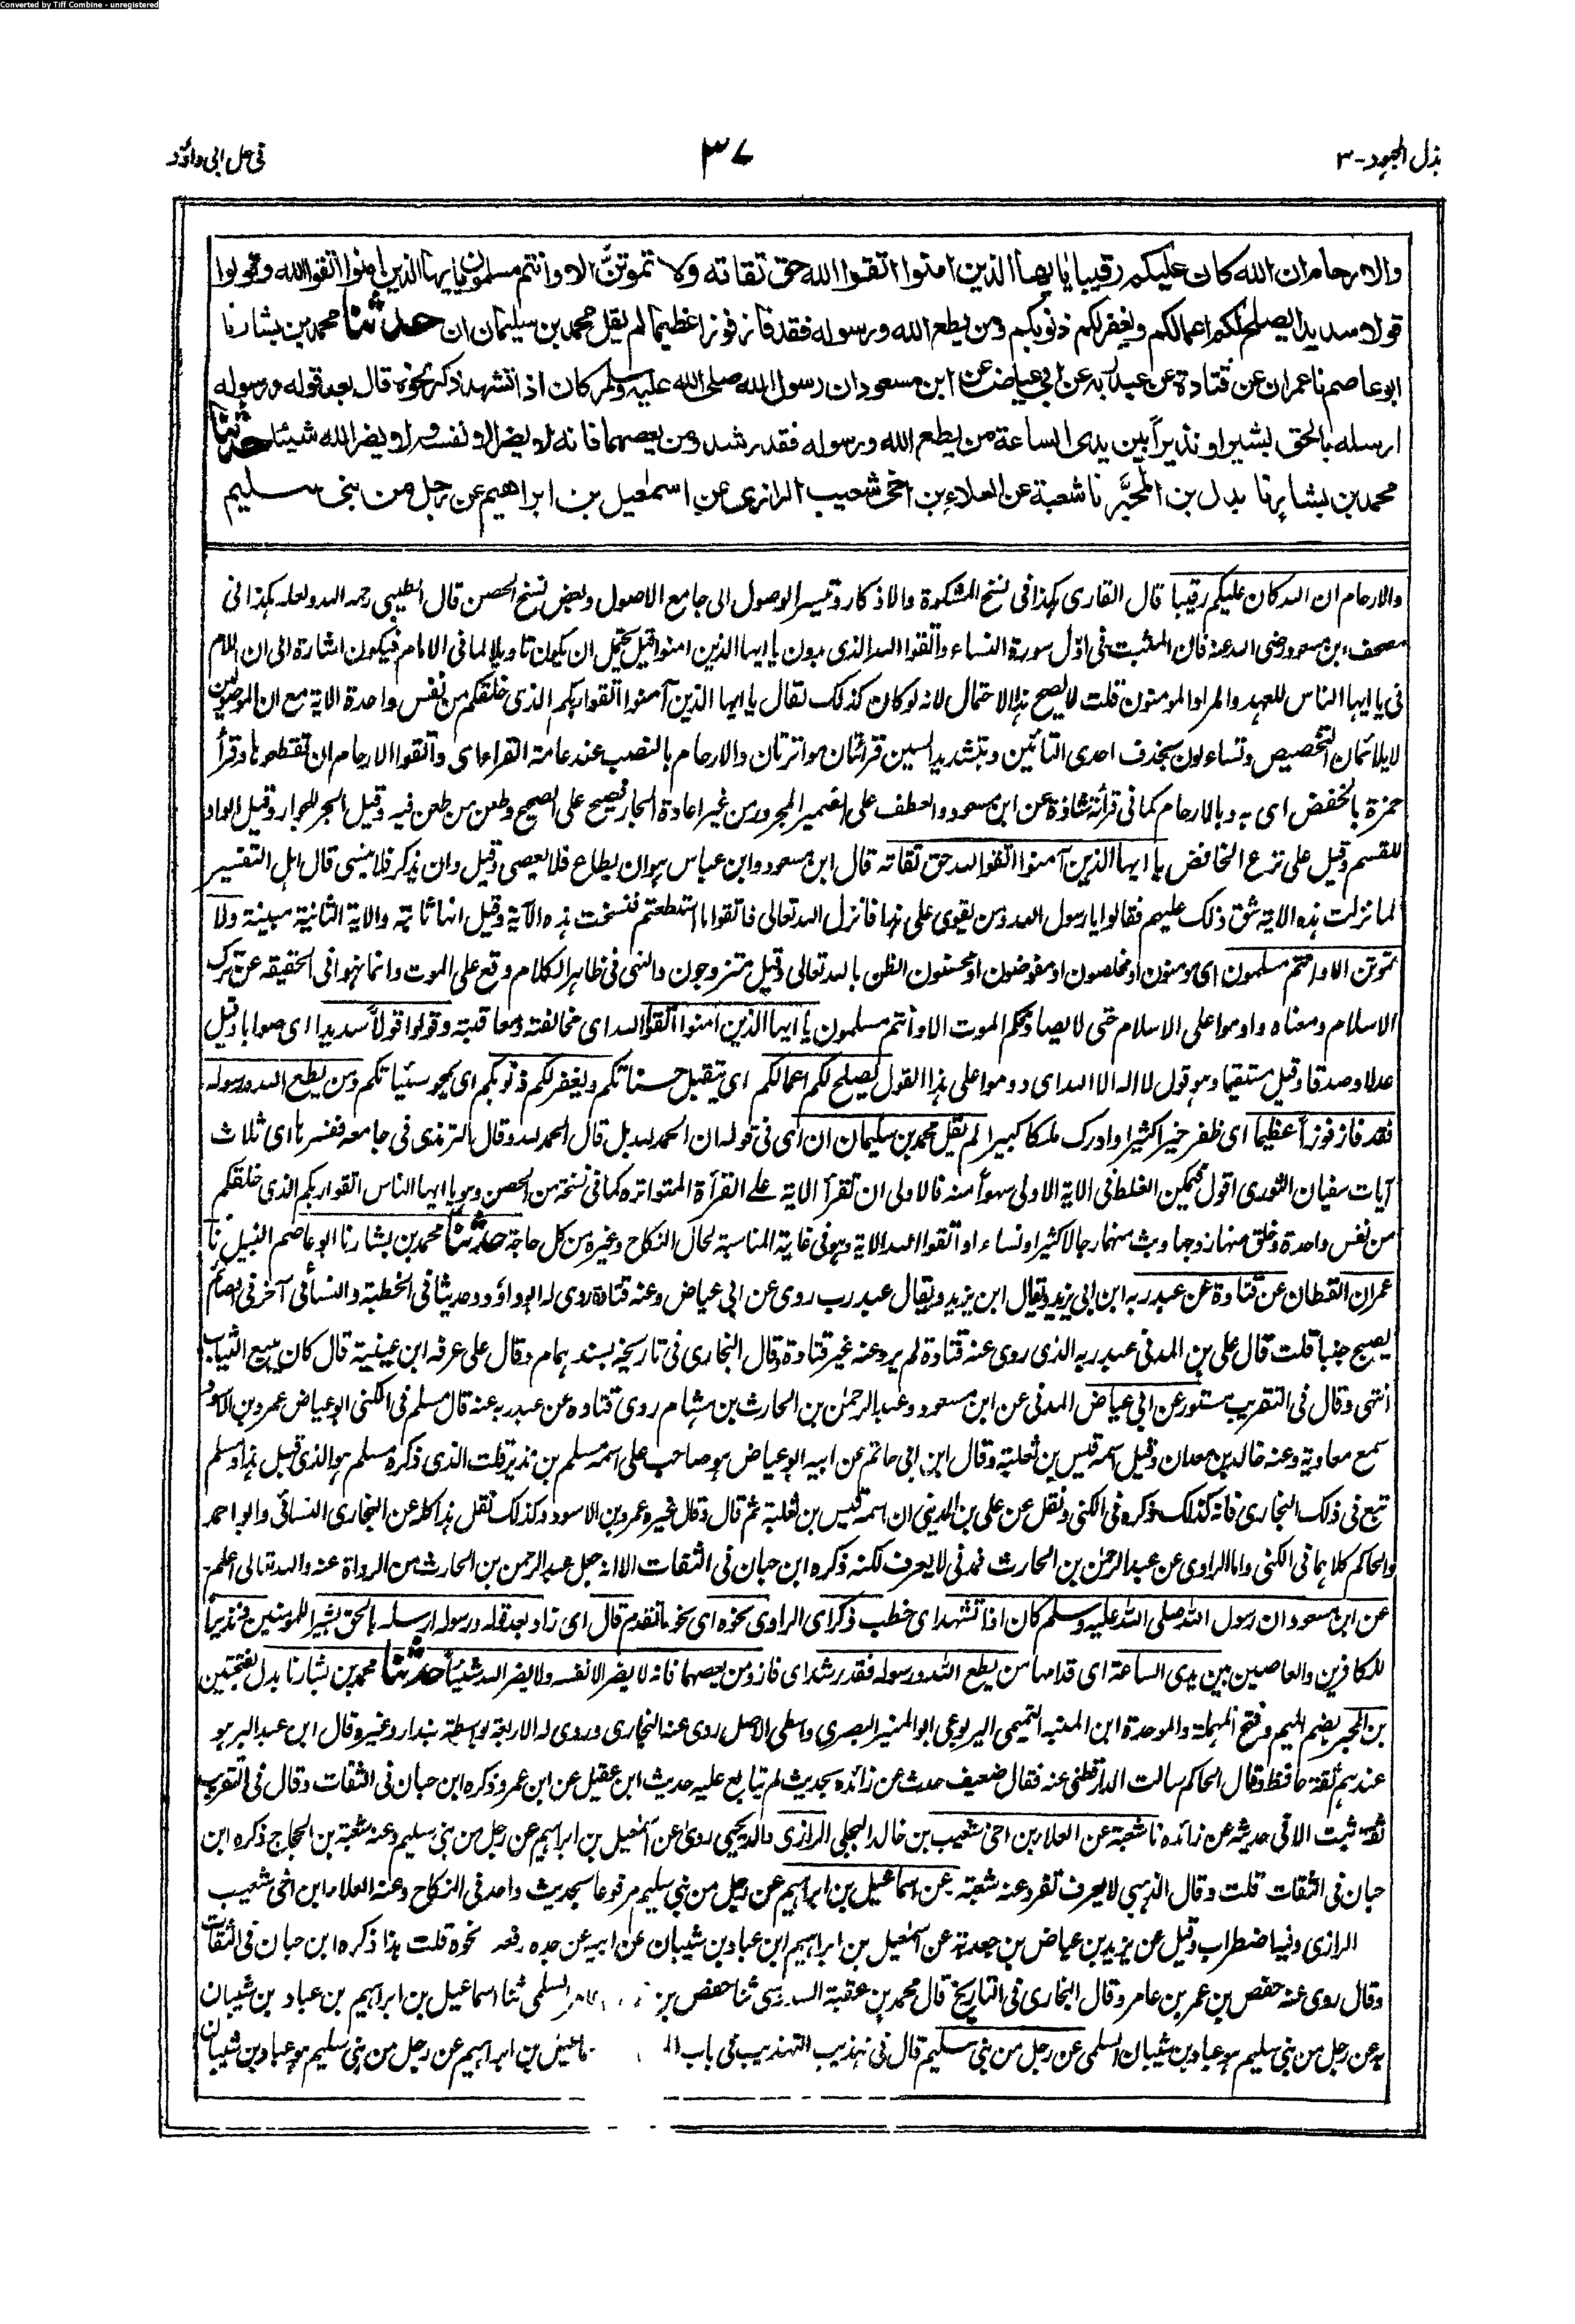 Converted by Tiff Combine - unregistered
بذل المجهود-٣
٣٧
في حل ابي داؤد
والارحام ان الله كان عليكم رقيبا يايها الذين امنوا اتقوا الله حق تقاته ولا تموتن الا وانتم مسلمون يايها الذين امنوا اتقوا الله وقولوا
قولا سديدا يصلح لكم اعمالكم ويغفر لكم ذنوبكم ومن يطع الله ورسوله فقد فاز فوزا عظيما لم يقل محمد بن سليمان ان حدثنا محمد بن بشار نا
ابو عاصم نا عمران عن قتادة عن عبد ربه عن ابي عياض عن ابن مسعود ان رسول الله صلى الله عليه وسلم كان اذا تشهد ذكر نحوه قال بعد قوله ورسوله
ارسله بالحق بشيرا ونذيرا بين يدي الساعة من يطع الله ورسوله فقد رشد ومن يعصهما فانه لا يضر الا نفسه ولا يضر الله شيئا حدثنا
محمد بن بشار نا بدل بن المحبَّر نا شعبة عن العلاء بن اخي شعيب الرازي عن اسمٰعيل بن ابراهيم عن رجل من بني سليم
والارحام ان الله كان عليكم رقيبا قال القاري هكذا في نسخ المشكوة والاذكار وتيسير الوصول الى جامع الاصول وبعض نسخ الحصن قال الطيبي رحمه الله ولعله هكذا في
مصحف ابن مسعود رضي الله عنه فان المثبت في اول سورة النساء واتقوا الله الذي بدون يا ايها الذين امنوا قيل يحتمل ان يكون تاويلا لما في الامام فيكون اشارة الى ان اللام
في يا ايها الناس للعهد والمراد المومنون قلت لا يصح هذا الاحتمال لانه لو كان كذلك لقال يا ايها الذين آمنوا اتقوا ربكم الذي خلقكم من نفس واحدة الاية مع ان الموصولين
لا يلائمان التخصيص وتساءلون بحذف احدى التائين وبتشديد السين قرائتان متواترتان والارحام بالنصب عند عامة القراء اى واتقوا الارحام ان تقطعوها وقرأ
حمزة بالخفض اى به وبالارحام كما في قرأة شاذة عن ابن مسعود والعطف على الضمير المجرور من غير اعادة الجار فصيح على الصحيح وطعن من طعن فيه وقيل الجر للجوار وقيل الواو
للقسم وقيل على نزع الخافض يا ايها الذين آمنوا اتقوا الله حق تقاته قال ابن مسعود وابن عباس هو ان يطاع فلا يعصى وقيل وان يذكر فلا ينسى قال اهل التفسير
لما نزلت هذه الاية شق ذلك عليهم فقالوا يا رسول الله ومن يقوى على هذا فانزل الله تعالى فاتقوا ما استطعتم فنسخت هذه الآية وقيل انها ثابتة والاية الثانية مبينة ولا
تموتن الا وانتم مسلمون اى مومنون او مخلصون او مفوضون او محسنون الظن بالله تعالى وقيل متزوجون والنهي في ظاهر الكلام وقع على الموت وانما نهوا في الحقيقة عن ترك
الاسلام ومعناه داوموا على الاسلام حتى لا يصادفكم الموت الا وانتم مسلمون يا ايها الذين امنوا اتقوا الله اى مخالفته ومعاقبته وقولوا قولاً سديدا اى صوابا وقيل
عدلا وصدقا وقيل مستقيما وهو قول لا اله الا الله اى دوموا على هذا القول يصلح لكم اعمالكم اى يتقبل حسناتكم ويغفر لكم ذنوبكم اى يمحو سيئاتكم ومن يطع الله ورسوله
فقد فاز فوزاً عظيما اى ظفر خيرا كثيرا وادرك ملكا كبيرا لم يقل محمد بن سليمان ان اى في قوله ان الحمد لله بل قال الحمد لله وقال الترمذي في جامعه ففسرها اى ثلاث
آيات سفيان الثوري اقول فيمكن الغلط في الاية الاولى سهواً منه فالاولى ان تقرأ الاية على القرأة المتواترة كما في نسخة من الحصن وهو يا ايها الناس اتقوا ربكم الذي خلقكم
من نفس واحدة وخلق منها زوجها وبث منهما رجالا كثيرا ونساء واتقوا الله الاية وهو في غاية المناسبة لحال النكاح وغيره من كل حاجة حدثنا محمد بن بشار نا ابو عاصم النبيل نا
عمران القطان عن قتادة عن عبد ربه ابن ابي يزيد ويقال ابن يزيد ويقال عبد رب روى عن ابي عياض وعنه قتادة روى له ابو داؤد حديثا في الخطبة والنسائي آخر في الصائم
يصبح جنبا قلت قال علي بن المدني عبد ربه الذي روى عنه قتادة لم يرو عنه غير قتادة وقال البخاري في تاريخه بسنده همام وقال علي عرفه ابن عيينة قال كان يبيع الثياب
انتهى وقال في التقريب مستور عن ابي عياض المدني عن ابن مسعود وعبد الرحمٰن بن الحارث بن هشام روى قتادة عن عبد ربه عنه قال مسلم في الكنى ابو عياض عمرو بن الاسود
سمع معاوية وعنه خالد بن معدان وقيل اسمه قيس بن ثعلبة وقال ابن ابي حاتم عن ابيه ابو عياض هو صاحب علي اسمه مسلم بن نذير قلت الذي ذكره مسلم هو الذي قبل هذا ومسلم
تبع في ذلك البخاري فانه كذلك ذكره في الكنى ونقل عن علي بن المديني ان اسمه قيس بن ثعلبة ثم قال وقال غيره عمرو بن الاسود وكذلك نقل هذا كله عن البخاري النسائي وابو احمد
والحاكم كلاهما في الكنى واما الراوي عن عبد الرحمٰن بن الحارث فمدني لا يعرف لكنه ذكره ابن حبان في الثقات الا انه جعل عبد الرحمن بن الحارث من الرواة عنه والله تعالى اعلم-
عن ابن مسعود ان رسول الله صلى الله عليه وسلم كان اذا تشهد اى خطب ذكر اى الراوي نحوه اى نحو ما تقدم قال اى زاد بعد قوله ورسوله ارسله بالحق بشيرا للمومنين ونذيراً
للكافرين والعاصين بين يدي الساعة اى قدامها من يطع الله ورسوله فقد رشد اى فاز ومن يعصهما فانه لا يضر الا نفسه ولا يضر الله شيئاً حدثنا محمد بن بشار نا بدل بفتحتين
بن المحبر بضم الميم وفتح المهملة والموحدة ابن المنبه التميمي اليربوعي ابو المنير البصري واسطي الاصل روى عنه البخاري وروى له الاربعة بواسطة بندار وغيره وقال ابن عبد البر هو
عندهم ثقة حافظ وقال الحاكم سالت الدارقطني عنه فقال ضعيف حدث عن زائدة بحديث لم يتابع عليه حديث ابن عقيل عن ابن عمر وذكره ابن حبان في الثقات وقال في التقريب
ثقة ثبت الا في حديثه عن زائدة نا شعبة عن العلاء بن اخي شعيب بن خالد البجلي الرازي والد يحيى روى عن اسمٰعيل بن ابراهيم عن رجل من بني سليم وعنه شعبة بن الحجاج ذكره ابن
حبان في الثقات قلت وقال الذهبي لا يعرف تفرد عنه شعبة عن اسماعيل بن ابراهيم عن رجل من بني سليم مرفوعا بحديث واحد في النكاح وعنه العلاء ابن اخي شعيب
الرازي وفيه اضطراب وقيل عن يزيد بن عياض بن جعدبة عن اسمٰعيل بن ابراهيم ابن عباد بن شيبان عن ابيه عن جده رفعه نحوه قلت هذا ذكره ابن حبان في الثقات
وقال روى عنه حفص بن عمر بن عامر وقال البخاري في التاريخ قال محمد بن عقبة السدوسي ثنا حفص بن عامر السلمي ثنا اسماعيل بن ابراهيم بن عباد بن شيبان
عن رجل من بني سليم هو عباد بن شيبان السلمي عن رجل من بني سليم قال في تهذيب التهذيب في باب بن ابراهيم عن رجل من بني سليم هو عباد بن شيبان